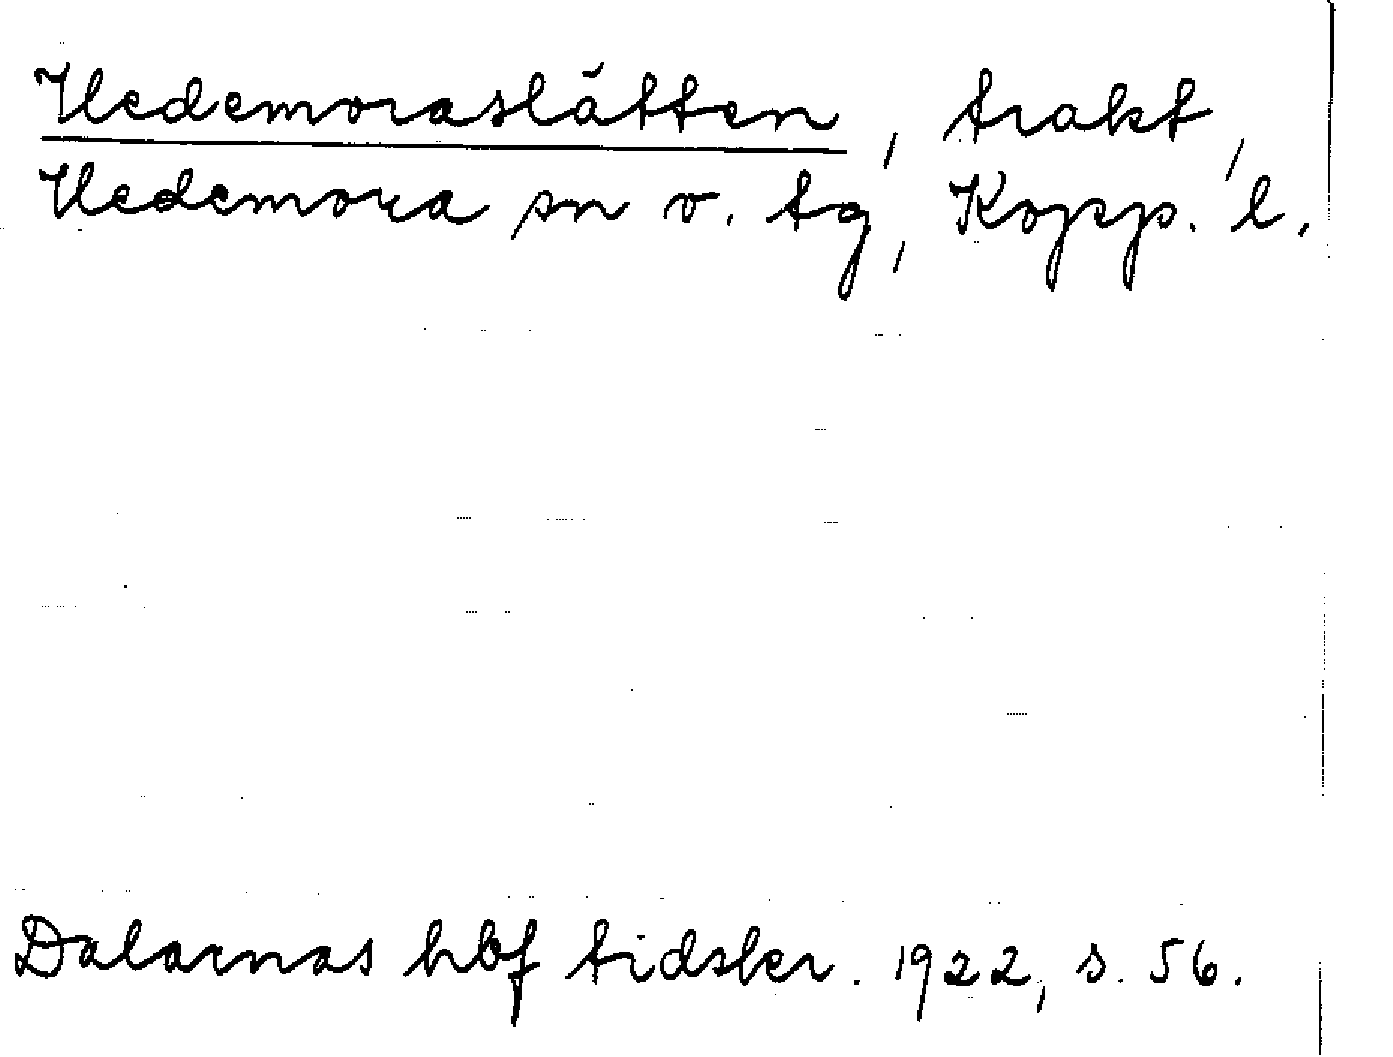 Hedemoraslätten, trakt,
Hedemora sn o. tg, Kopp. l.
Dalarnas hbf tidskr. 1922, s. 56.